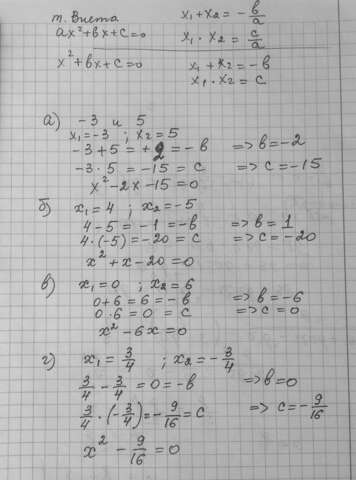 т. Виета x₁+x₂ = -b/a
ax²+bx+c=0 x₁ · x₂ = c/a
x²+bx+c=0 x₁ + x₂ = -b
x₁ · x₂ = c
а) -3 и 5
x₁=-3 ; x₂=5
-3+5 = +2 = -b => b=-2
-3·5 = -15 = c => c=-15
x²-2x-15=0
б) x₁=4 ; x₂=-5
4-5=-1=-b => b=1
4·(-5)=-20=c => c=-20
x²+x-20=0
в) x₁=0 ; x₂=6
0+6=6=-b => b=-6
0·6=0=c => c=0
x²-6x=0
г) x₁=3/4 ; x₂=-3/4
3/4 - 3/4 = 0 = -b => b=0
3/4 · (-3/4) = -9/16 = c => c=-9/16
x² - 9/16 = 0